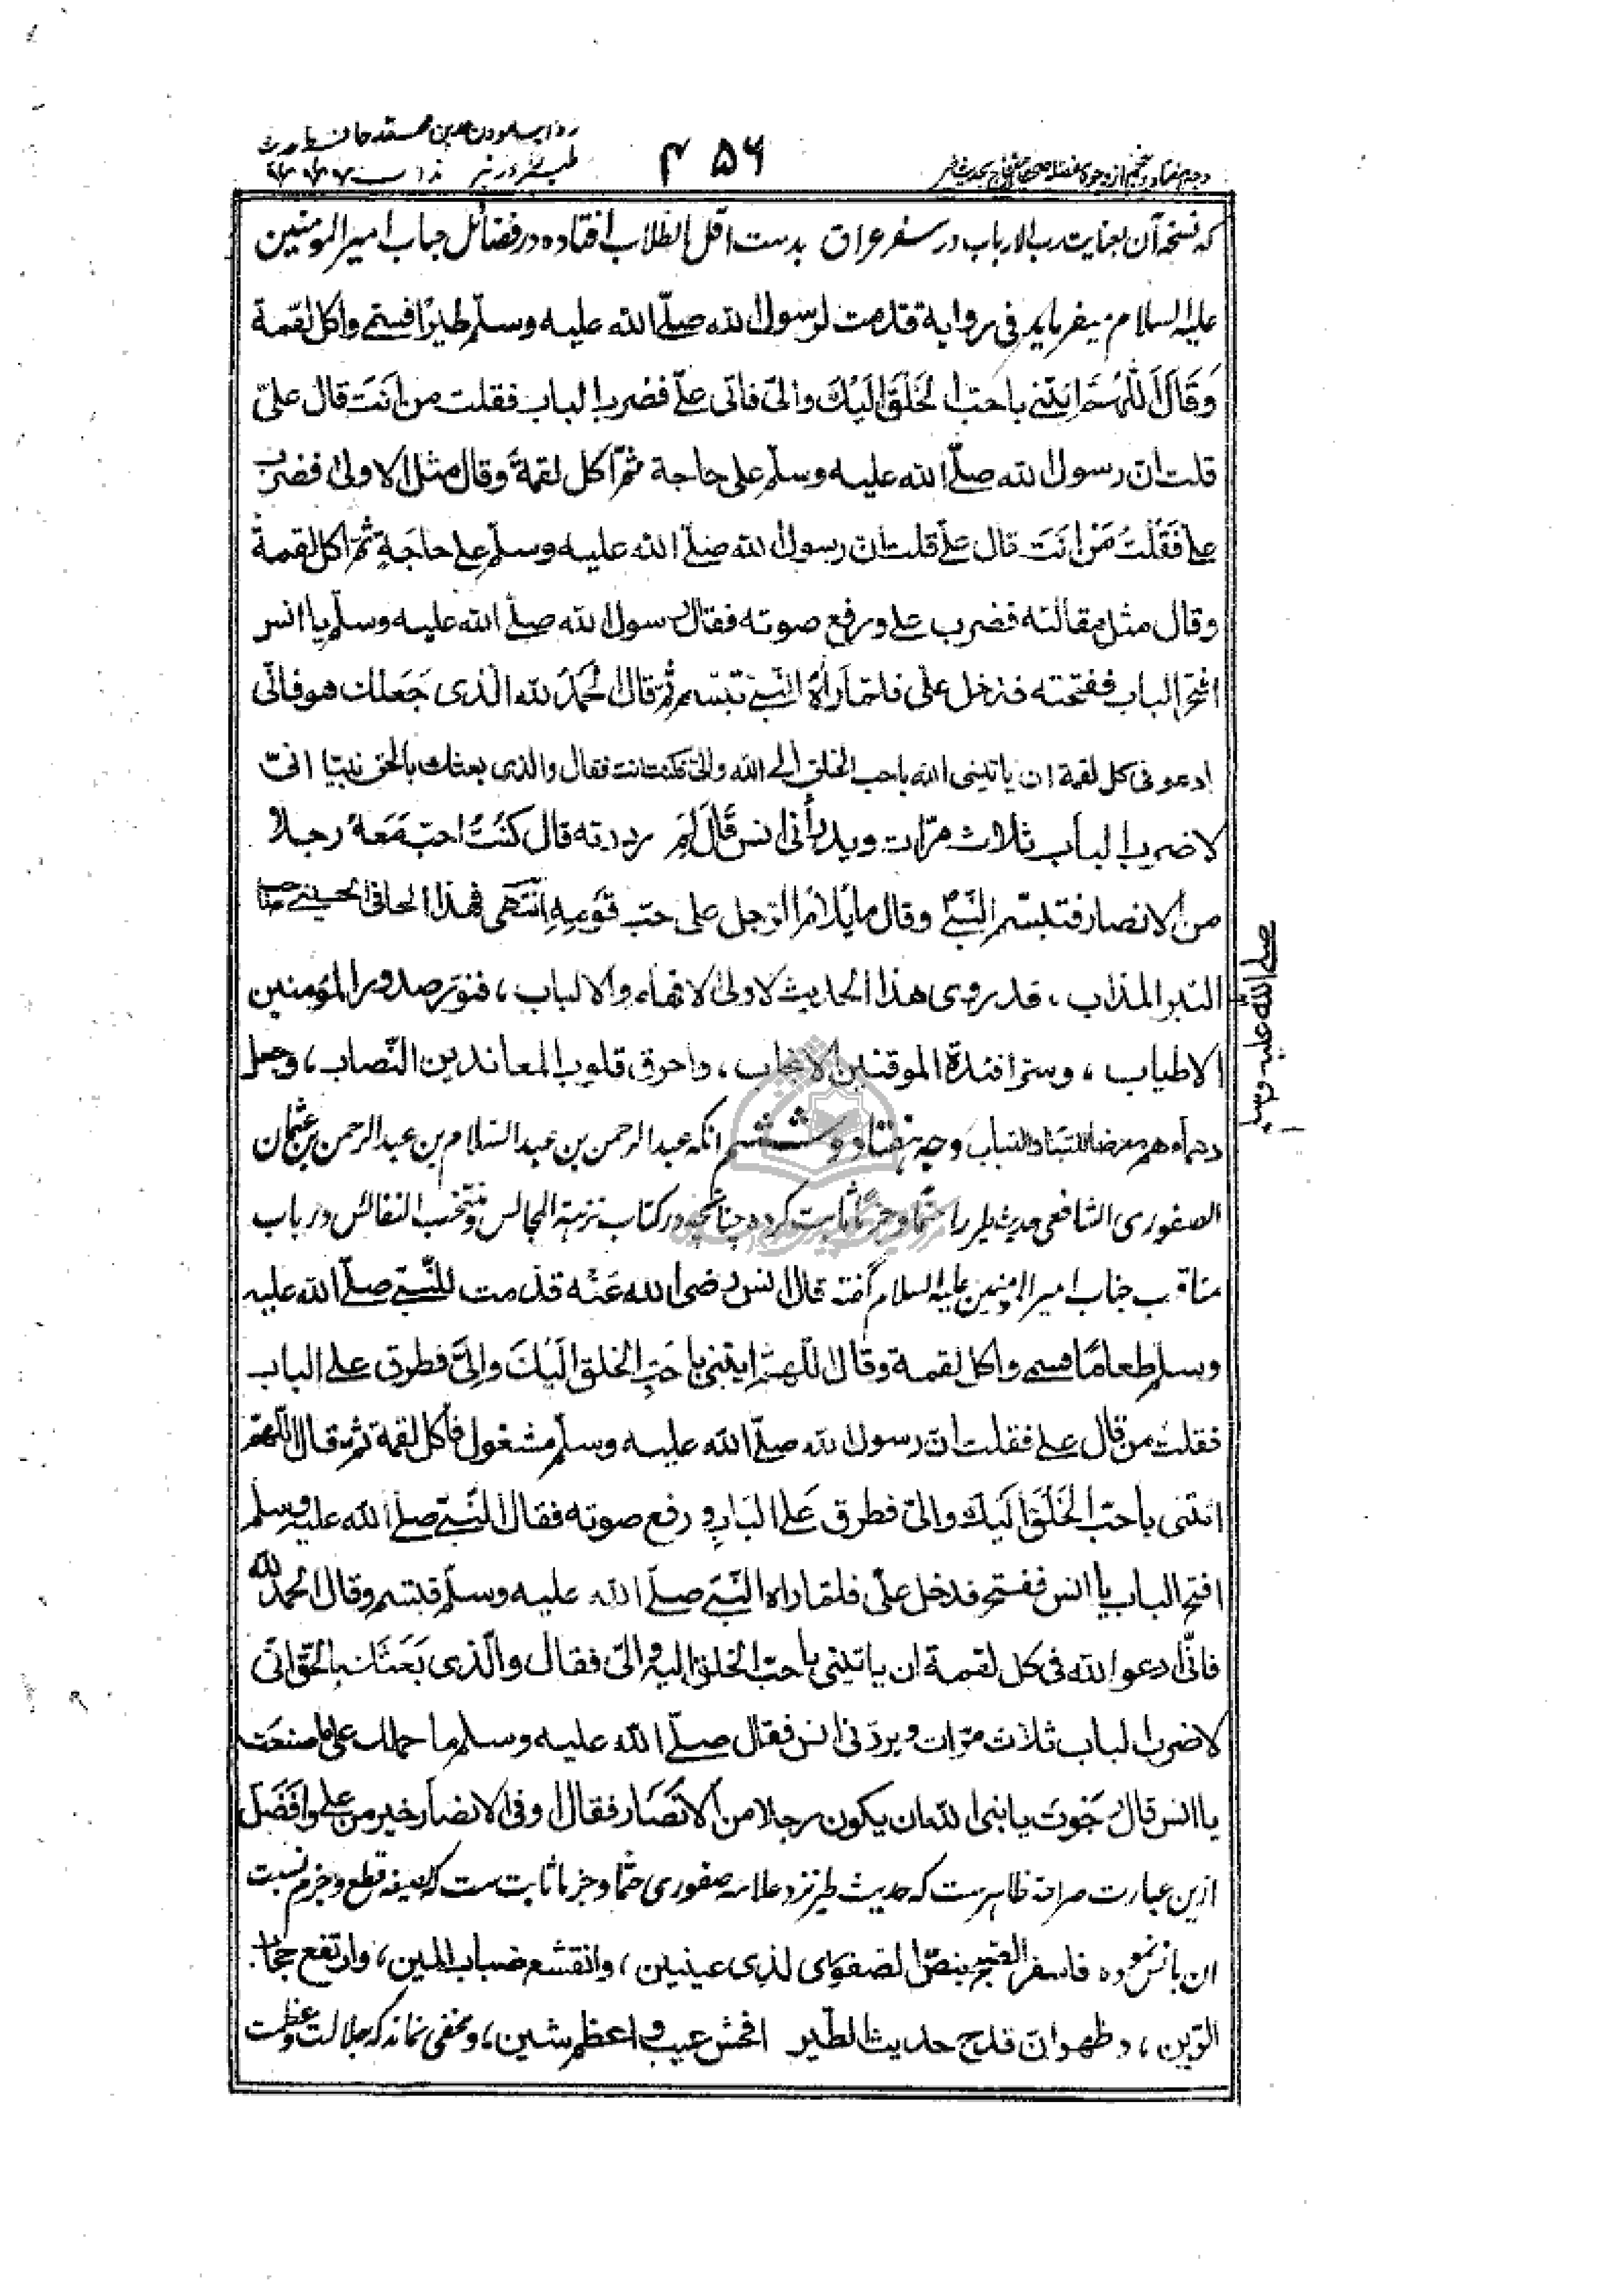 ۴۵۶
که نسخه آن بعنایت رب الارباب در سفر عراق بدست اقل الطلاب افتاده در فضائل جناب امیر المومنین
علیه السلام میفرماید فی روایة قدمت لرسول الله صلّی الله علیه وسلّم طیرًا فسمّی واکل لقمة
وَقَالَ اَللّٰهُمَّ ائتنی باحبّ الخَلْقِ اِلَیْكَ والیّ فاتی علیّ فضرب الباب فقلت من اَنتَ قال علیّ
قلت انّ رسول الله صلّی الله علیه وسلّم علی حاجة ثمّ اکل لقمةً وقال مثل الاولیٰ فضرب
علی فَقُلْتُ مَنْ انتَ قال علی قلت ان رسول الله صلّی الله علیه وسلّم علی حاجَةٍ ثمّ اکل لقمةً
وقال مثل مقالته فضرب علی ورفع صوته فقال رسول الله صلّی الله علیه وسلّم یا انس
افتح الباب ففتحته فدخل علی فلمّا رَاٰهُ النّبی تبسّم ثم قال الحمدُ لله الّذی جَعَلك هو فانّی
ادعو فی کل لقمة ان یاتینی الله باحب الخلق الی الله والیّ فکنت انت فقال والذی بعثك بالحق نبیّا انیّ
لاضرب الباب ثلاث مرّات ویردّنی انس قَالَ لِمَ رددته قال کنتُ احبّ مَعَهُ رجلا
من الانصار فتبسّم النّبیّ وقال مایُلَامُ الرّجل علی حبّ قَوْمِهِ انتَهی فهذا الحافی الحسینی صاحب
التبر المذاب، قد روی هذا الحدیث لاولی الافهام والالباب، فنوّر صدور المؤمنین
الاطیاب، وسرّ افئدة الموقنین الانجاب، واحرق قلوب المعاندین النّصاب، وجعل
دماءهم معرضا للتباد والتباب وجه هفتاد و ششم آنکه عبد الرحمن بن عبد السّلام بن عبد الرحمن بن عثمان
الصفوری الشافعی حدیث طیر را حتمًا وجزمًا ثابت کرده چنانچه در کتاب نزهة المجالس ومنتخب النفائس در باب
مناقب جناب امیر المومنین علیه السلام گفته قال انس رضی الله عَنْه قدّمت للنّبیّ صلّی الله علیه
وسلم طعامًا فسمی واکل لقمة وقال اللّهمّ ایتنی باحَبِّ الخلق الَیْكَ والیَّ فطرق علی الباب
فقلت من قال علی فقلت انّ رسول الله صلّی الله علیه وسلّم مشغول فأکل لقمة ثمّ قال اللّهمّ
ائتنی باحبّ الخَلْقِ الَیْكَ والیّ فطرق عَلَی البَاب ورفع صوته فقال النّبیّ صلی الله علیه وسلم
افتح الباب یا انس ففتح فدخل علیّ فلمّا راه النّبیّ صلّی الله علیه وسلّم تبسّم وقال الحمد لله
فانّی ادعو الله فی کل لقمة ان یاتینی باحبّ الخلق الیه والیّ فقال والّذی بَعَثَك بالحقّ انّی
لاضرب الباب ثلاث مرّات ویردّنی انس فقال صلّی الله علیه وسلم ما حملك علی ما صنعت
یا انس قال رجوت یا نبی الله ان یکون رجلا من الانصَار فقال اوفی الانصار خیر من علی وافضل
ازین عبارت صراحة ظاهرست که حدیث طیر نزد علامه صفوری حتمًا وجزمًا ثابت ست که بصیغه قطع وجزم نسبت
آن بانس نموده فاسفر الفجر بنصّ الصفوری لذی عینین، وانقشع ضباب المین، وارتفع حجاب
الرّین، وظهر انّ قدح حدیث الطّیر افحش عیب واعظم شین، ومخفی نماند که جلالت وعظمت
صلی الله علیه وسلم